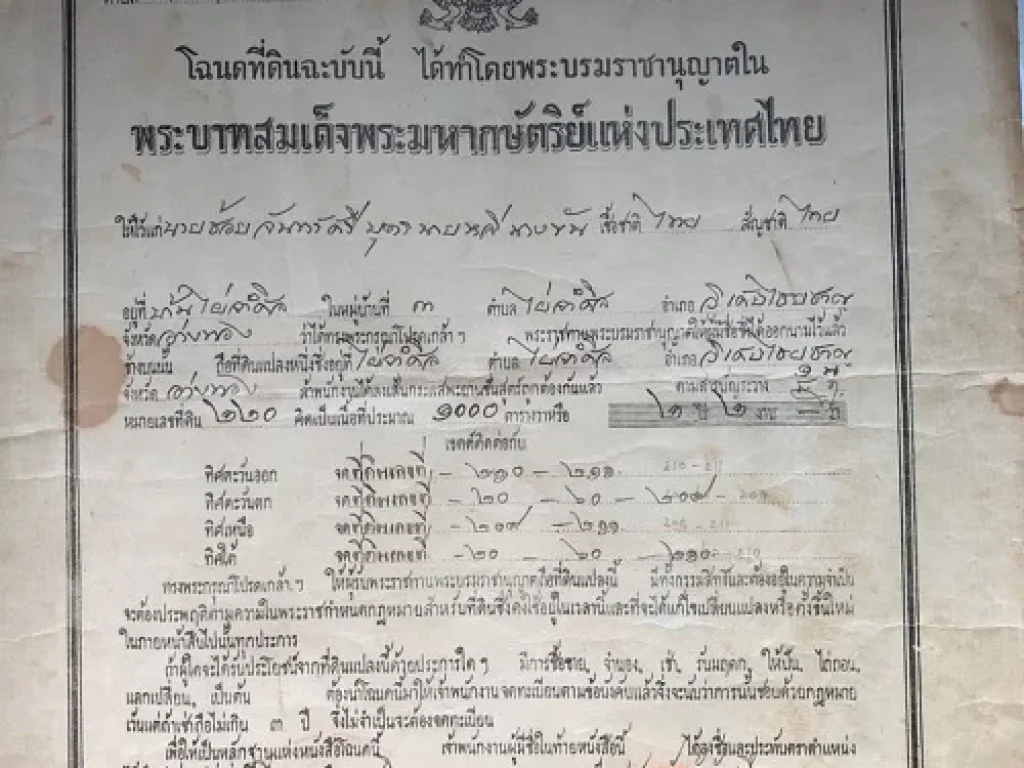 โฉนดที่ดินฉะบับนี้ ได้ทำโดยพระบรมราชานุญาตใน
พระบาทสมเด็จพระมหากษัตริย์แห่งประเทศไทย
ให้ไว้แก่ นาย จันทร์ศรี บุตร นาย นาง เชื้อชาติ ไทย สัญชาติ ไทย
อยู่ที่ บ้านไผ่จำศีล ในหมู่บ้านที่ ๓ ตำบล ไผ่จำศีล อำเภอ วิเศษไชยชาญ
จังหวัด อ่างทอง ว่าได้ทรงพระกรุณาโปรดเกล้า ฯ พระราชทานพระบรมราชานุญาตให้ผู้มีชื่อที่ได้ออกนามไว้แล้ว
ข้างบนนั้น ถือที่ดินแปลงหนึ่งซึ่งอยู่ที่ ไผ่จำศีล ตำบล ไผ่จำศีล อำเภอ วิเศษไชยชาญ
จังหวัด อ่างทอง เจ้าพนักงานได้ลงเส้นกระแสพะยานขึ้นสูตรถูกต้องกันแล้ว ตามสารบัญระวาง
หมายเลขที่ดิน ๒๒๐ คิดเป็นเนื้อที่ประมาณ ๑๐๐๐ ตารางวาหรือ ๒ ไร่ ๒ งาน — วา
เขตต์ติดต่อกับ
ทิศตะวันออก จดที่ดินเลขที่ – ๒๑๐ – ๒๑๑ 210 - 211
ทิศตะวันตก จดที่ดินเลขที่ – ๒๐ – ๖๐ – ๒๐๙ - 209
ทิศเหนือ จดที่ดินเลขที่ – ๒๐๙ – ๒๑๑
ทิศใต้ จดที่ดินเลขที่ – ๒๐ – ๖๐ – ๒๑๐ - 210
ทรงพระกรุณาโปรดเกล้า ฯ ให้ผู้รับพระราชทานพระบรมราชานุญาตถือที่ดินแปลงนี้ มีทั้งกรรมสิทธิ์และต้องอยู่ในความจำเป็น
จะต้องประพฤติตามความในพระราชกำหนดกฎหมายสำหรับที่ดินซึ่งตั้งใช้อยู่ในเวลานี้และที่จะได้แก้ไขเปลี่ยนแปลงหรือตั้งขึ้นใหม่
ในภายหน้าสืบไปนั้นทุกประการ
ถ้าผู้ใดจะได้รับประโยชน์จากที่ดินแปลงนี้ด้วยประการใด ๆ มีการซื้อขาย, จำนอง, เช่า, รับมฤดก, ให้ปัน, ไถ่ถอน,
แลกเปลี่ยน, เป็นต้น ต้องนำโฉนดนี้มาให้เจ้าพนักงานจดทะเบียนตามข้อบังคับแล้วจึงจะนับว่าการนั้นชอบด้วยกฎหมาย
เว้นแต่ถ้าเช่าถือไม่เกิน ๓ ปี จึงไม่จำเป็นจะต้องจดทะเบียน
เพื่อให้เป็นหลักฐานแห่งหนังสือโฉนดนี้ เจ้าพนักงานผู้มีชื่อในท้ายหนังสือนี้ ได้ลงชื่อและประทับตราตำแหน่ง